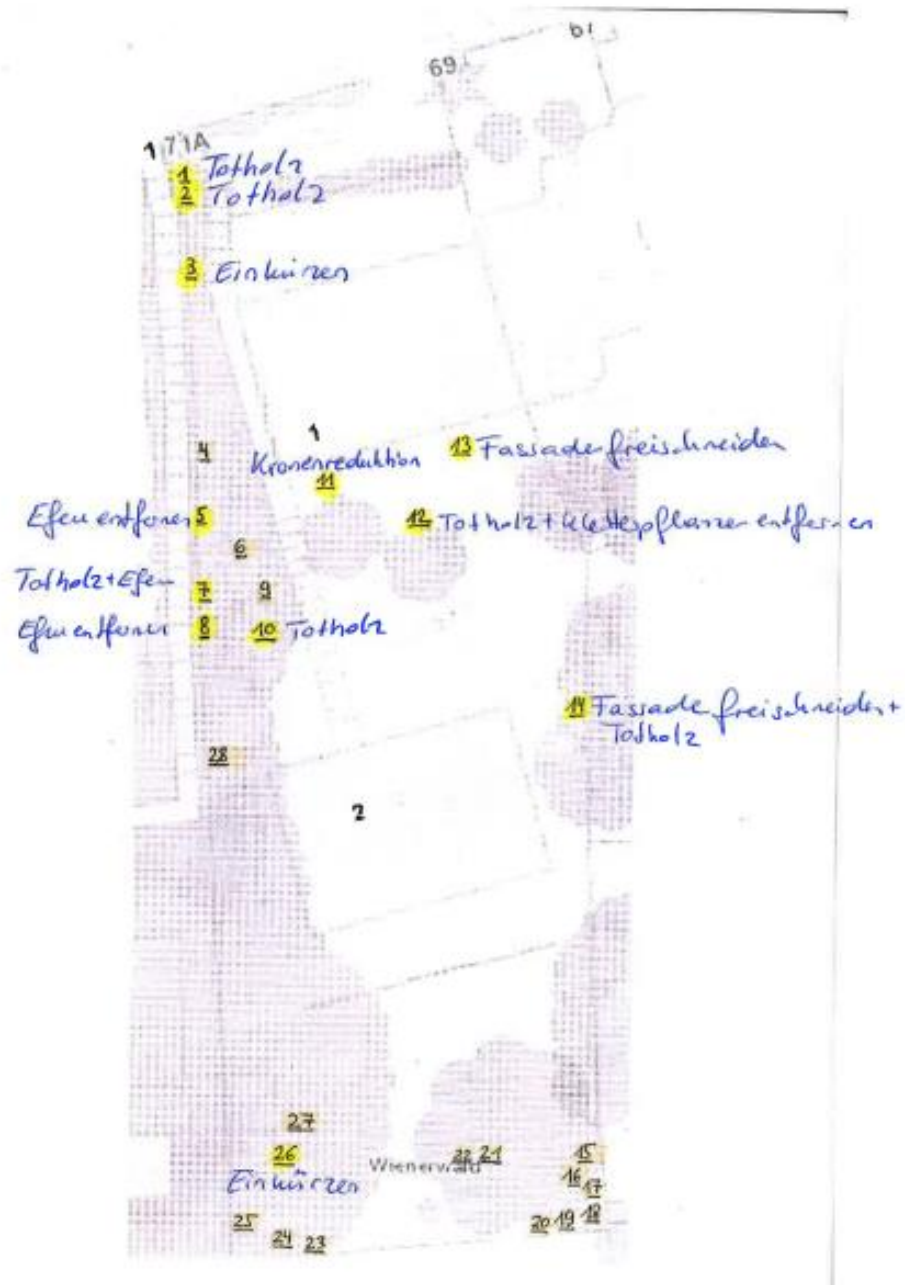 69
61
1 71A
1 Totholz
2 Totholz
3 Einkürzen
4
1
Kronenreduktion
11
13 Fassade freischneiden
Efeu entfernen 5
12 Totholz + Kletterpflanzen entfernen
6
Totholz + Efeu 7
9
Efeu entfernen 8
10 Totholz
14 Fassade freischneiden +
Totholz
28
2
27
26
Einkürzen
Wienerwald
22 21
15
16
17
25
24
23
20 19 18